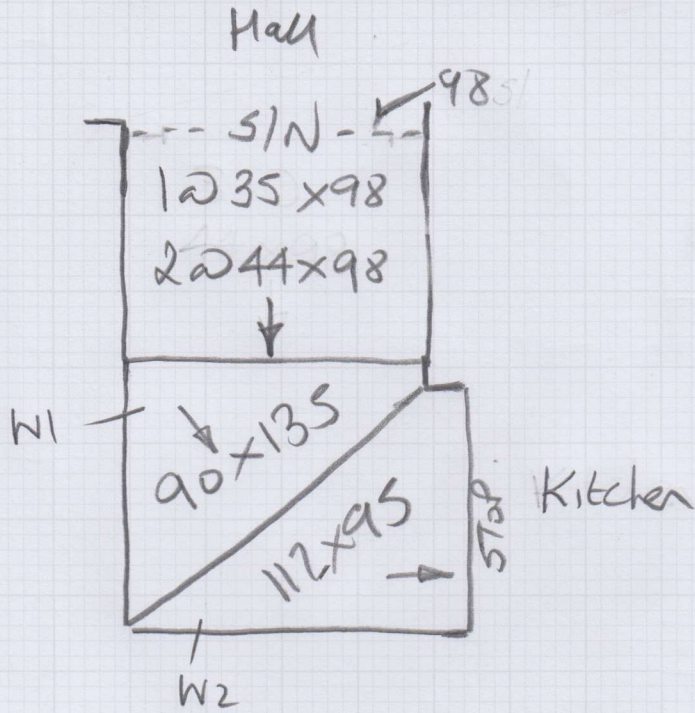 Hall
98
S/N
1@35x98
2@44x98
W1
90x135
112x95
STOP
Kitchen
W2